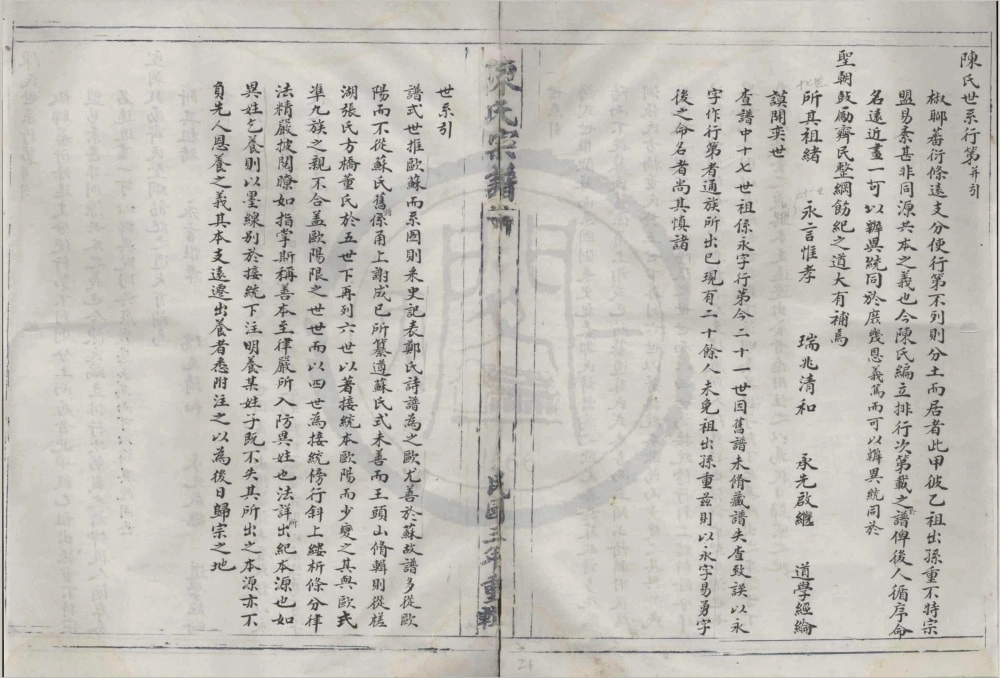 陳氏世系行第並引
椒聊蕃衍條遠支分便行第不列則分土而居者此甲彼乙祖出孫重不特宗
盟易紊甚非同源共本之義也今陳氏編立排行次第載之譜俾後人循序命
名遠近畫一可以辨異統同於庶幾恩義篤而可以辨異統同於
聖朝敦勵齊民整綱飭紀之道大有補焉
所其祖緒 永言惟孝 瑞兆清和 承先啟繼 道學經綸
謨開奕世
查譜中十七世祖係永字行第今二十一世因舊譜未脩藏譜失查致誤以永
字作行第者通族所出已現有二十餘人未免祖出孫重茲則以永字易勇字
後之命名者尚其慎諸
陳氏宗譜
民國三年重輯
世系引
譜式世推歐蘇而系圖則釆史記表鄭氏詩譜為之歐尤善於蘇故譜多從歐
陽而不從蘇氏舊係甬上謝成已所纂遵蘇氏式未善而王頭山脩輯則從槎
湖張氏方橋董氏於五世下再列六世以著接統本歐陽而少變之其與歐式
準九族之親不合蓋歐陽限之世世而以四世為接統傍行斜上縷析條分律
法精嚴披閱瞭如指掌斯稱善本至律嚴所入防異姓也法詳出所紀本源也如
異姓乞養則以墨線别於接統下注明養某姓子既不失其所出之本源亦不
負先人恩養之義其本支遠遷出養者悉附注之以為後日歸宗之地
21